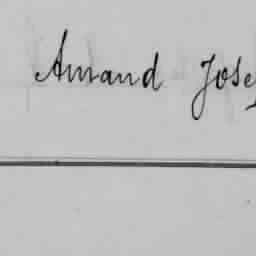 Amand Jose